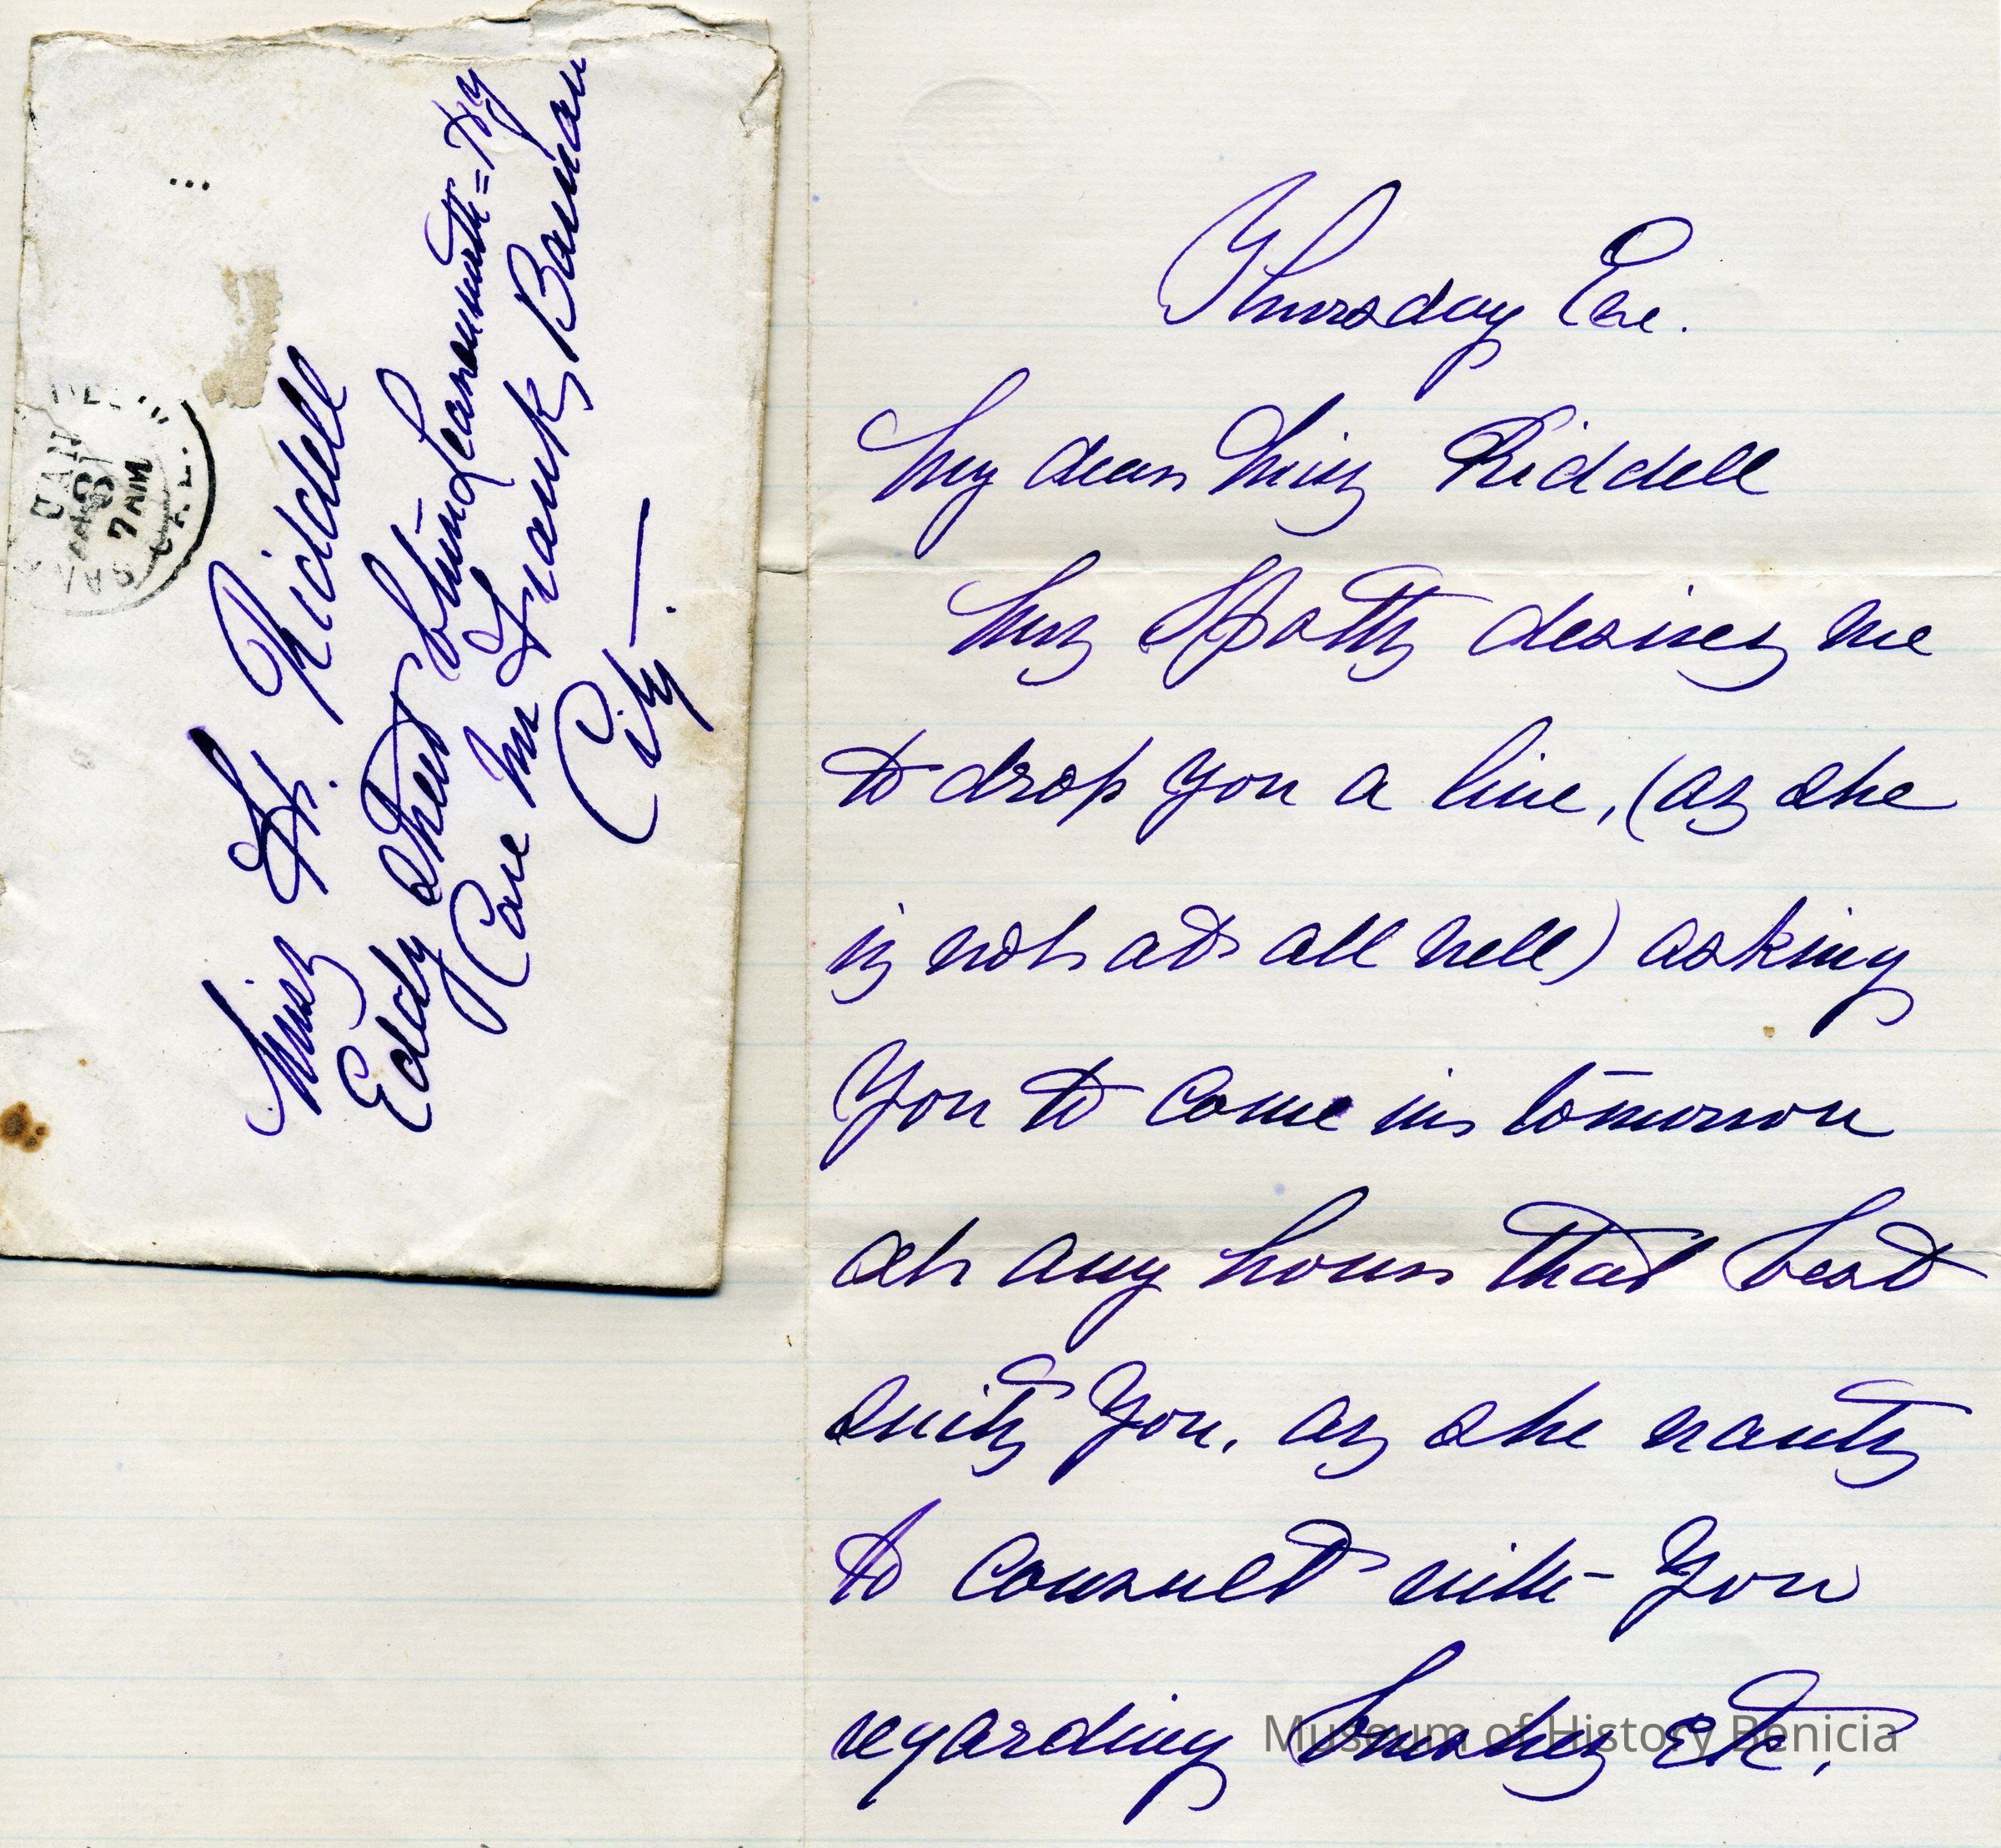 Miss H. Riddell
Eddy Street
Care Mr Frank Bauman
City
JAN
8
7 AM
CAL.
Thursday Eve.
My dear Miss Riddell
Mrs Spotts desires me
to drop you a line, (as she
is not at all well) asking
you to come in tomorrow
at any hour that best
suits you. as she wants
to consult with you
regarding brushes Etc,
Museum of History Benicia